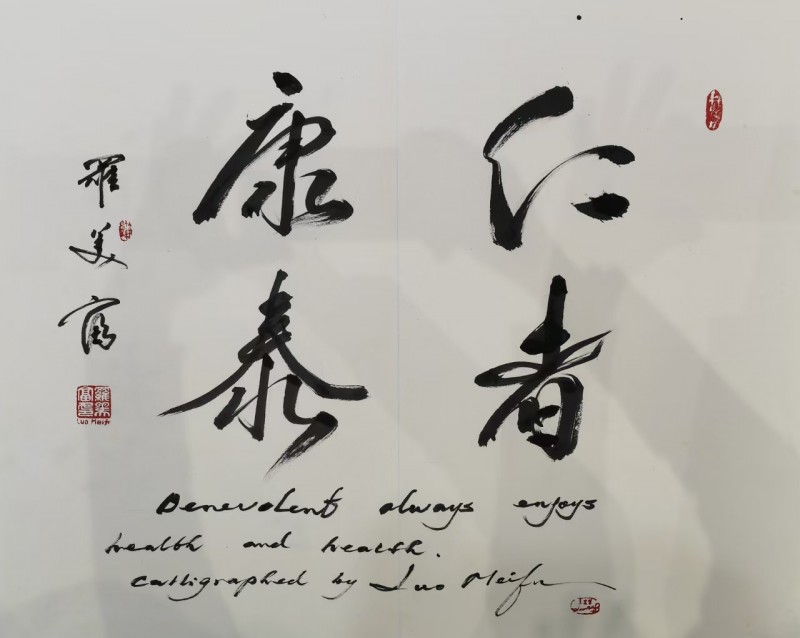 仁者
康泰
羅美富
Luo Meifu
Benevolent always enjoys
health and heatsh.
Calligraphed by Luo Meifu